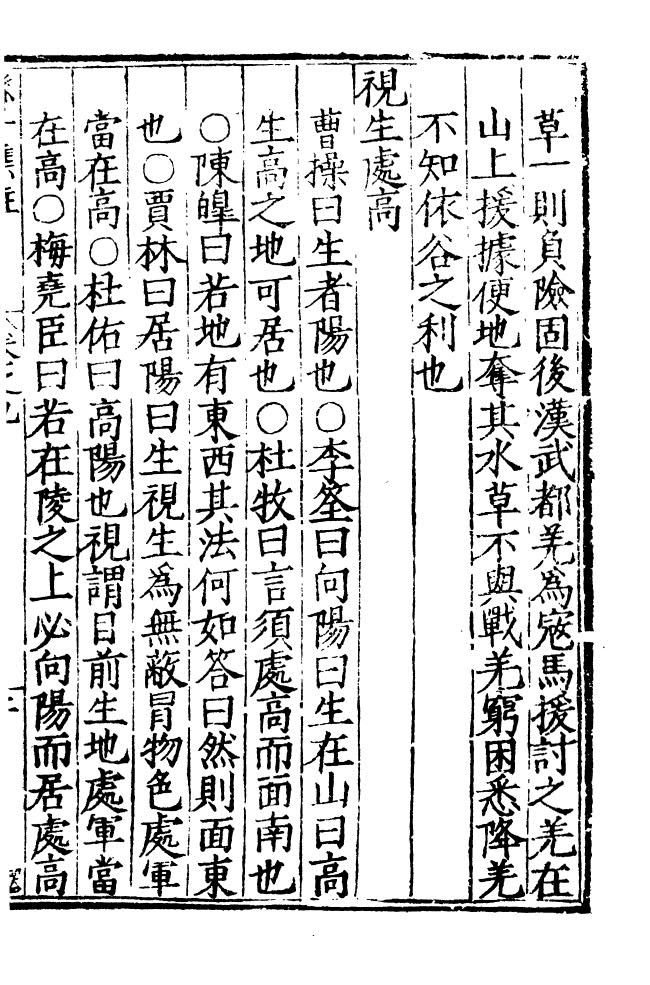 草一則負險固後漢武都羌為寇馬援討之羌在
山上援據便地奪其水草不與戰羌窮困悉降羌
不知依谷之利也
視生處高
曹操曰生者陽也○李筌曰向陽曰生在山曰高
生高之地可居也○杜牧曰言須處高而面南也
○陳皥曰若地有東西其法何如答曰然則面東
也○賈林曰居陽曰生視生為無蔽冒物色處軍
當在高○杜佑曰高陽也視謂目前生地處軍當
在高○梅堯臣曰若在陵之上必向陽而居處高